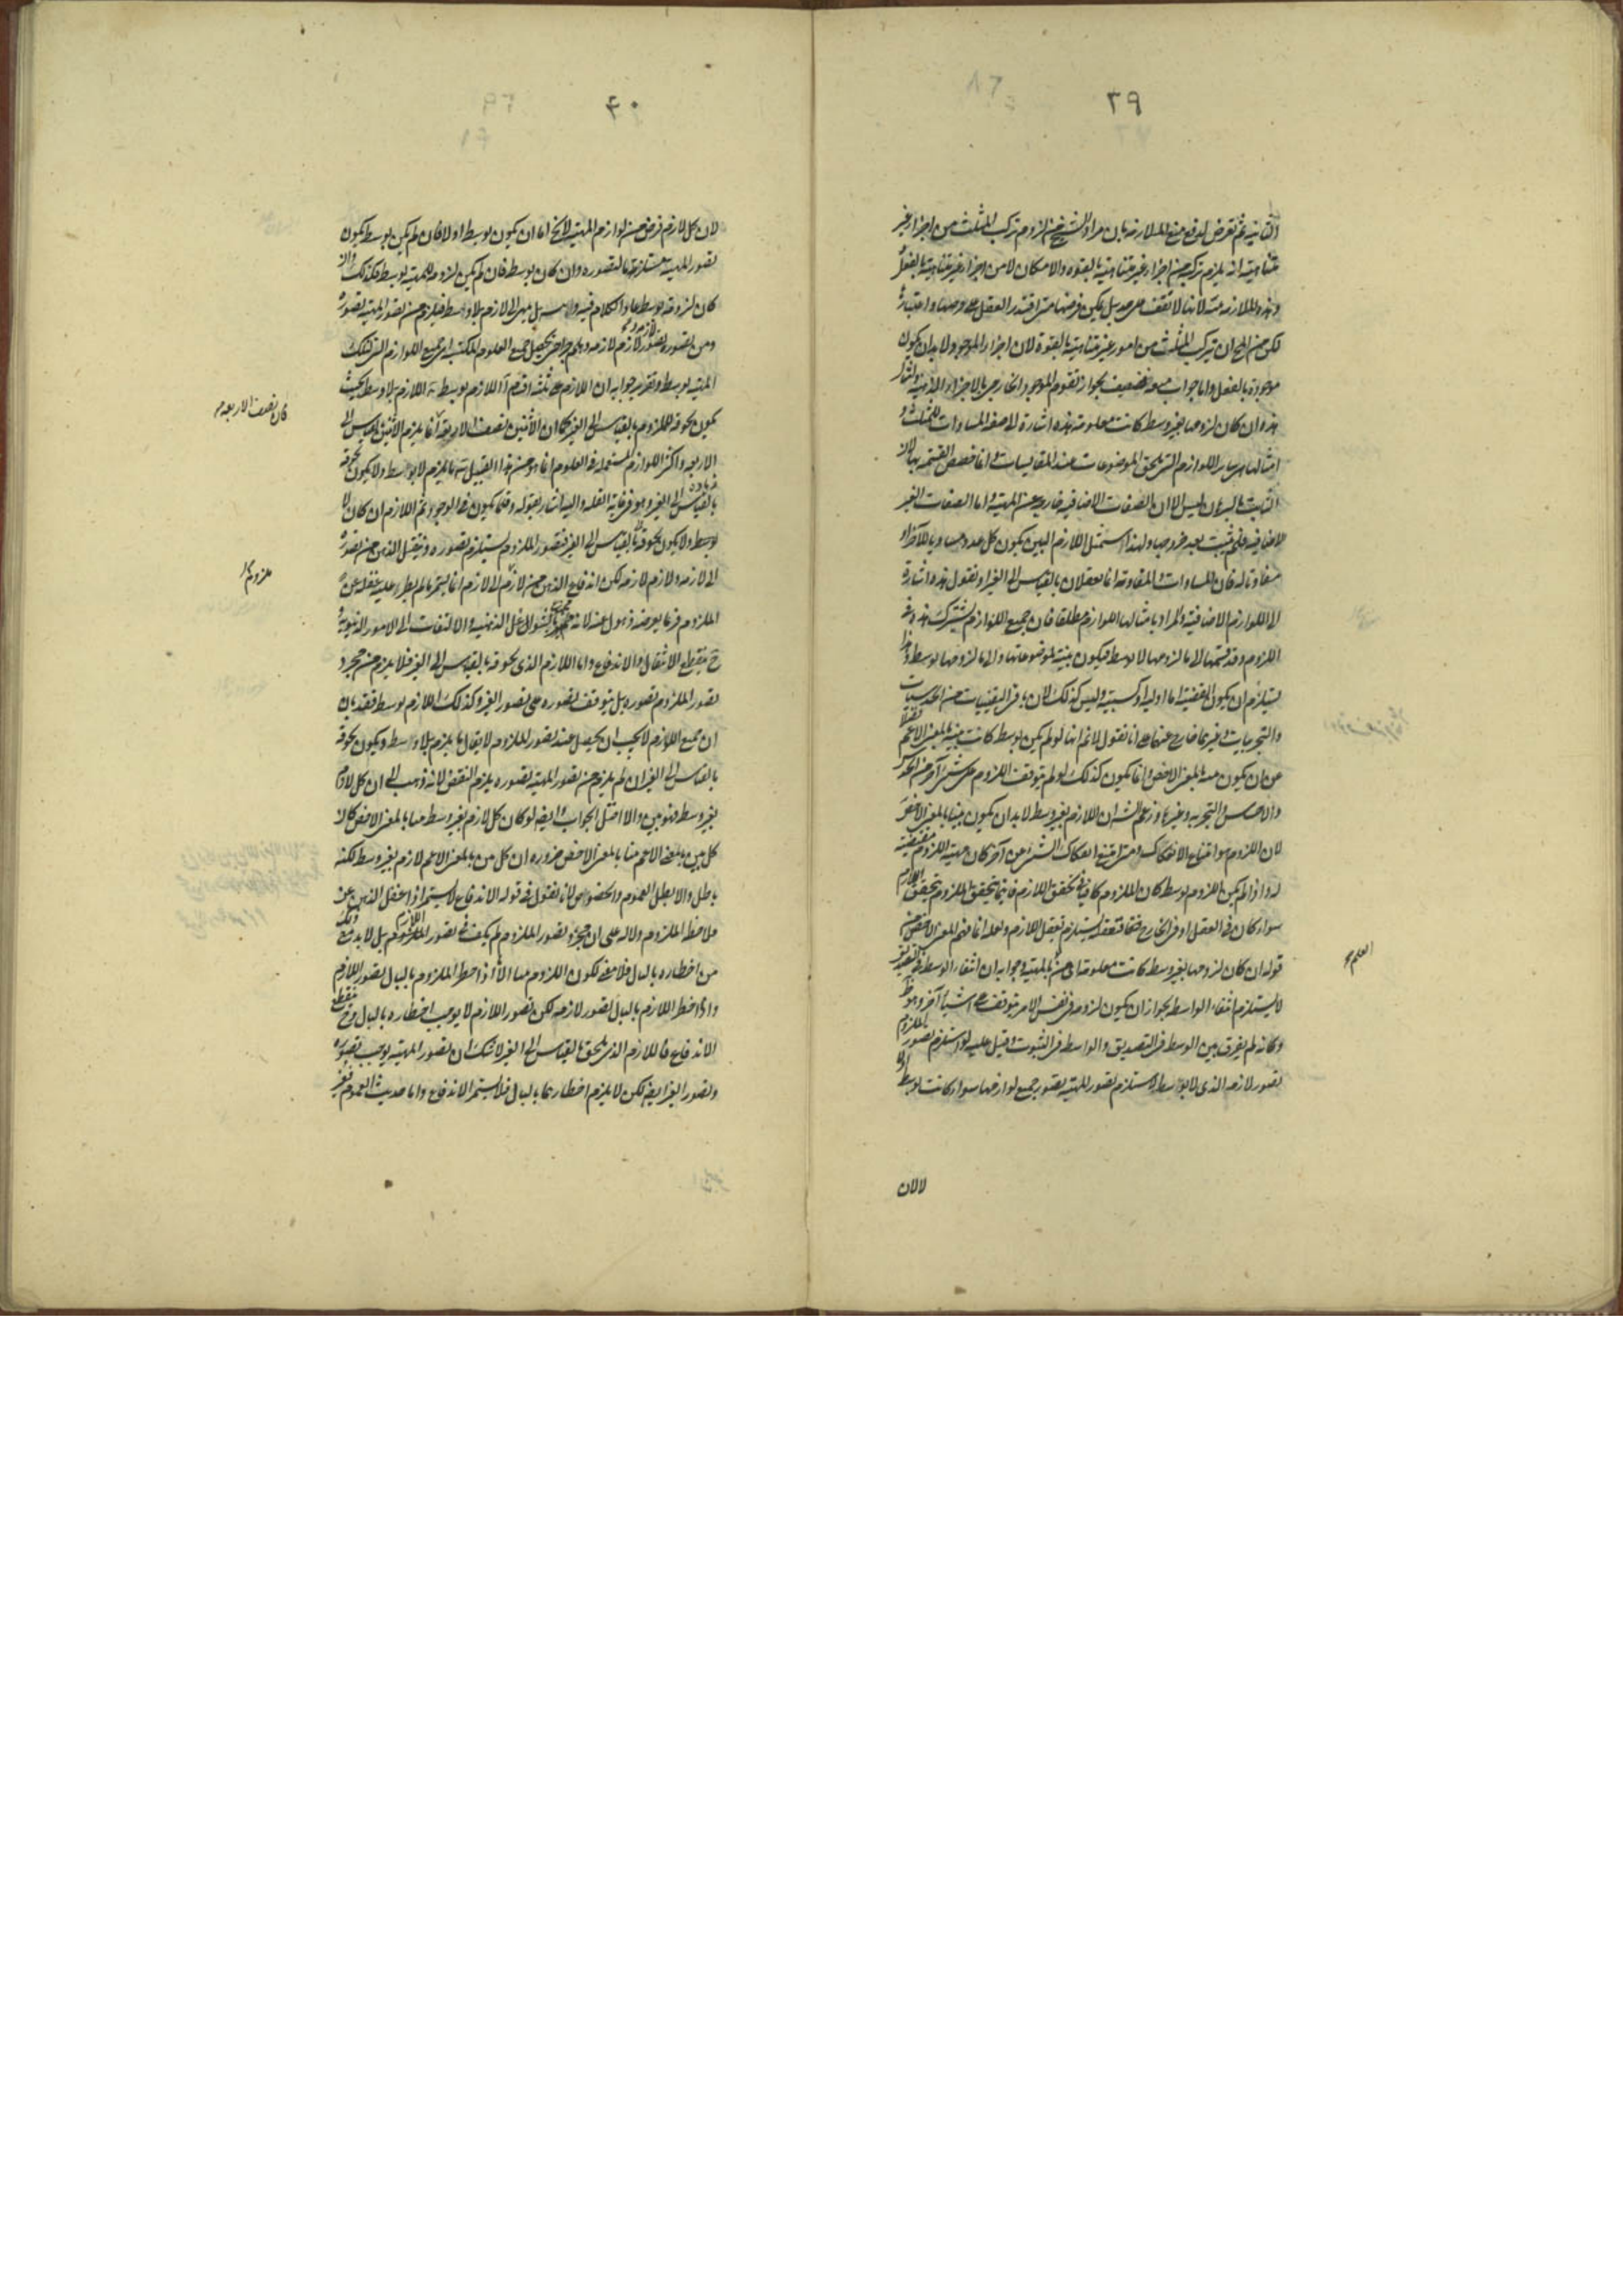 ٣٩
الثانية ثم تعرض لدفع منع الملازمة بان مراد الشيخ من لزوم تركب المثلث من اجزاء غير
متناهية انه يلزم تركبه من اجزاء غير متناهية بالقوة والامكان لا من اجزاء غير متناهية بالفعل
وهذه الملازمة لانها لا تقف على حد بل يمكن فرضها متى اقتدر العقل على فرضها واعتباره
لكن من المح ان يتركب المثلث من امور غير متناهية بالقوة لان اجزاء الموجود لا بد ان يكون
موجودة بالفعل واما جواب منعه فضعيف لجواز تقوم الموجود الخارجى بالاجزاء الذهنية واشار
هذه ان كان لزومها بغير وسط كانت معلومة هذه اشارة الى صفة المساوات للمثلث و
امثالها هى ساير اللوازم التى تلحق الموضوعات عند المقايسات وانما خصص القسمة بها لان
الثابت بالبرهان ليس الا ان الصفات الاضافية خارجة عن المهية واما الصفات الغير
الاضافية فلم يثبت بعد خروجها ولهذا استمثل اللازم البين بكون كل عدد مساويا للآخر او
مفاوتا له فان المساوات والمفاوتة انما تعقلان بالقياس الى الغير او نقول هذه اشارة
الى اللوازم الاضافية والمراد بامثالها اللوازم مطلقا فان جميع اللوازم يشترك هذه فى
اللزوم وقد قسمها الى ما لزومها لا بوسط فيكون بينة لموضوعاتها والى ما لزومها بوسط وهذا
يستلزم ان يكون القضية اما اولية او كسبية وليس كذلك لان باقى اليقينيات من الحدسيات
والتجربيات وغيرهما خارج عنهما على انا نقول لا نم انها لو لم يكن بوسط كانت بينة بالمعنى الاعم فضلا
عن ان يكون بينة بالمعنى الاخص وانما يكون كذلك لو لم يتوقف اللزوم على شئ آخر من الحدس
والاحساس والتجربة وغيرها وزعم الش ان اللازم بغير وسط لا بد ان يكون بينا بالمعنى الاخص
لان اللزوم هو امتناع الانفكاك ومتى امتنع انفكاك الشئ عن آخر كان مهية الملزوم مقتضية
له واذا لم يكن اللزوم بوسط كان الملزوم كافيا فى تحقق اللازم فاينما يتحقق الملزوم يتحقق اللازم
سواء كان فى العقل او فى الخارج فمتى تعقله يستلزم تعقل اللازم ولعله انما فهم المعنى الاخص من
قوله ان كان لزومها بغير وسط كانت معلومة اى من العلم بالمهية وجوابه ان انتفاء الوسط فى التصديق
لا يستلزم انتفاء الواسطة لجواز ان يكون لزومه فى نفس الامر يتوقف على اشياء آخر وهو ظ
وكانه لم يفرق بين الوسط فى التصديق والواسطة فى الثبوت قيل عليه لو استلزم تصور الملزوم
تصور لازمه الذى لا بواسطة لاستلزم تصور المهية تصور جميع لوازمها سواء كانت بوسط او لا
العلم
لالان
٤٠
لان كل لازم فرض من لوازم المهية لا يخ اما ان يكون بوسط اولا فان لم يكن بوسط يكون
تصور المهية مستلزما لتصوره وان كان بوسط فان لم يكن لزومه للمهية بوسط فكذلك والا
كان لزومه بوسط عاد الكلام فيه ولا يتسلسل بل ينتهى الى لازم بلا وسط فيلزم من تصور المهية تصوره
ومن تصوره تصور لازم لازمه وهلم جرا حتى يحصل جميع العلوم المكتسبة اى جميع اللوازم التى لتلك
المهية بوسط وتقرير جوابه ان اللازم على ثلثة اقسام آ اللازم بوسط ب اللازم بلا وسط بحيث
يكون لحوقه للملزوم بالقياس الى الغير كما ان الاثنين نصف الاربعة انما يلزم الاثنين بالقياس الى
الاربعة واكثر اللوازم المستعملة فى العلوم انما هو من هذا القبيل ج ما يلزم لا بوسط ولا يكون لحوقه
بالقياس الى الغير وهو فى غاية القلة واليه اشار بقوله وقلما يكون فى الوجود ثم اللازم ان كان لا
بوسط ولا يكون لحوقه بالقياس الى الغير فتصور الملزوم يستلزم تصوره وينتقل الذهن من تصوره
الى لازمه ولازم لازمه لكن اندفاع الذهن من لازم الى لازم انما يستمر ما لم يطرء عليه غفلة عن
الملزوم فربما يعرضه ذهول عنه لانه الشواغل الذهنية والالتفات الى الامور الدنيوية و
ح ينقطع الانتقال والاندفاع واما اللازم الذى لحوقه بالقياس الى الغير فلا يلزم من مجرد
تصور الملزوم تصوره بل يتوقف تصوره على تصور الغير وكذلك اللازم بوسط فقد بان
ان جميع اللوازم لا يجب ان يحصل عند تصور الملزوم لا يقال ما يلزم بلا وسط ويكون لحوقه
بالقياس الى الغير ان لم يلزم من تصور المهية تصوره يلزم النقض لانه ذهب الى ان كل لازم
بغير وسط فهو بين والا اختل الجواب وايضا لو كان كل لازم بغير وسط بينا بالمعنى الاخص كان
كل بين بالمعنى الاعم بينا بالمعنى الاخص ضرورة ان كل بين بالمعنى الاعم لازم بغير وسط لكنه
باطل والا بطل العموم والخصوص لانا نقول فى قوله الاندفاع لا يستمر اذا غفل الذهن عن
ملاحظة الملزوم دلالة على ان مجرد تصور الملزوم لم يكف فى تصور اللازم بل لا بد مع ذلك
من اخطاره بالبال فلا معنى لكون اللزوم بينا الا اذا اخطر الملزوم بالبال تصور اللازم
واذا اخطر اللازم بالبال تصور لازمه لكن تصور اللازم لا يوجب اخطاره بالبال وح ينقطع
الاندفاع فاللازم الذى يلحق بالقياس الى الغير لا شك ان تصور المهية يوجب تصوره
وتصور الغير ايضا لكن لا يلزم اخطارهما بالبال فلا يستمر الاندفاع واما حديث العموم فغير
كان نصف الاربعة
ملزوم